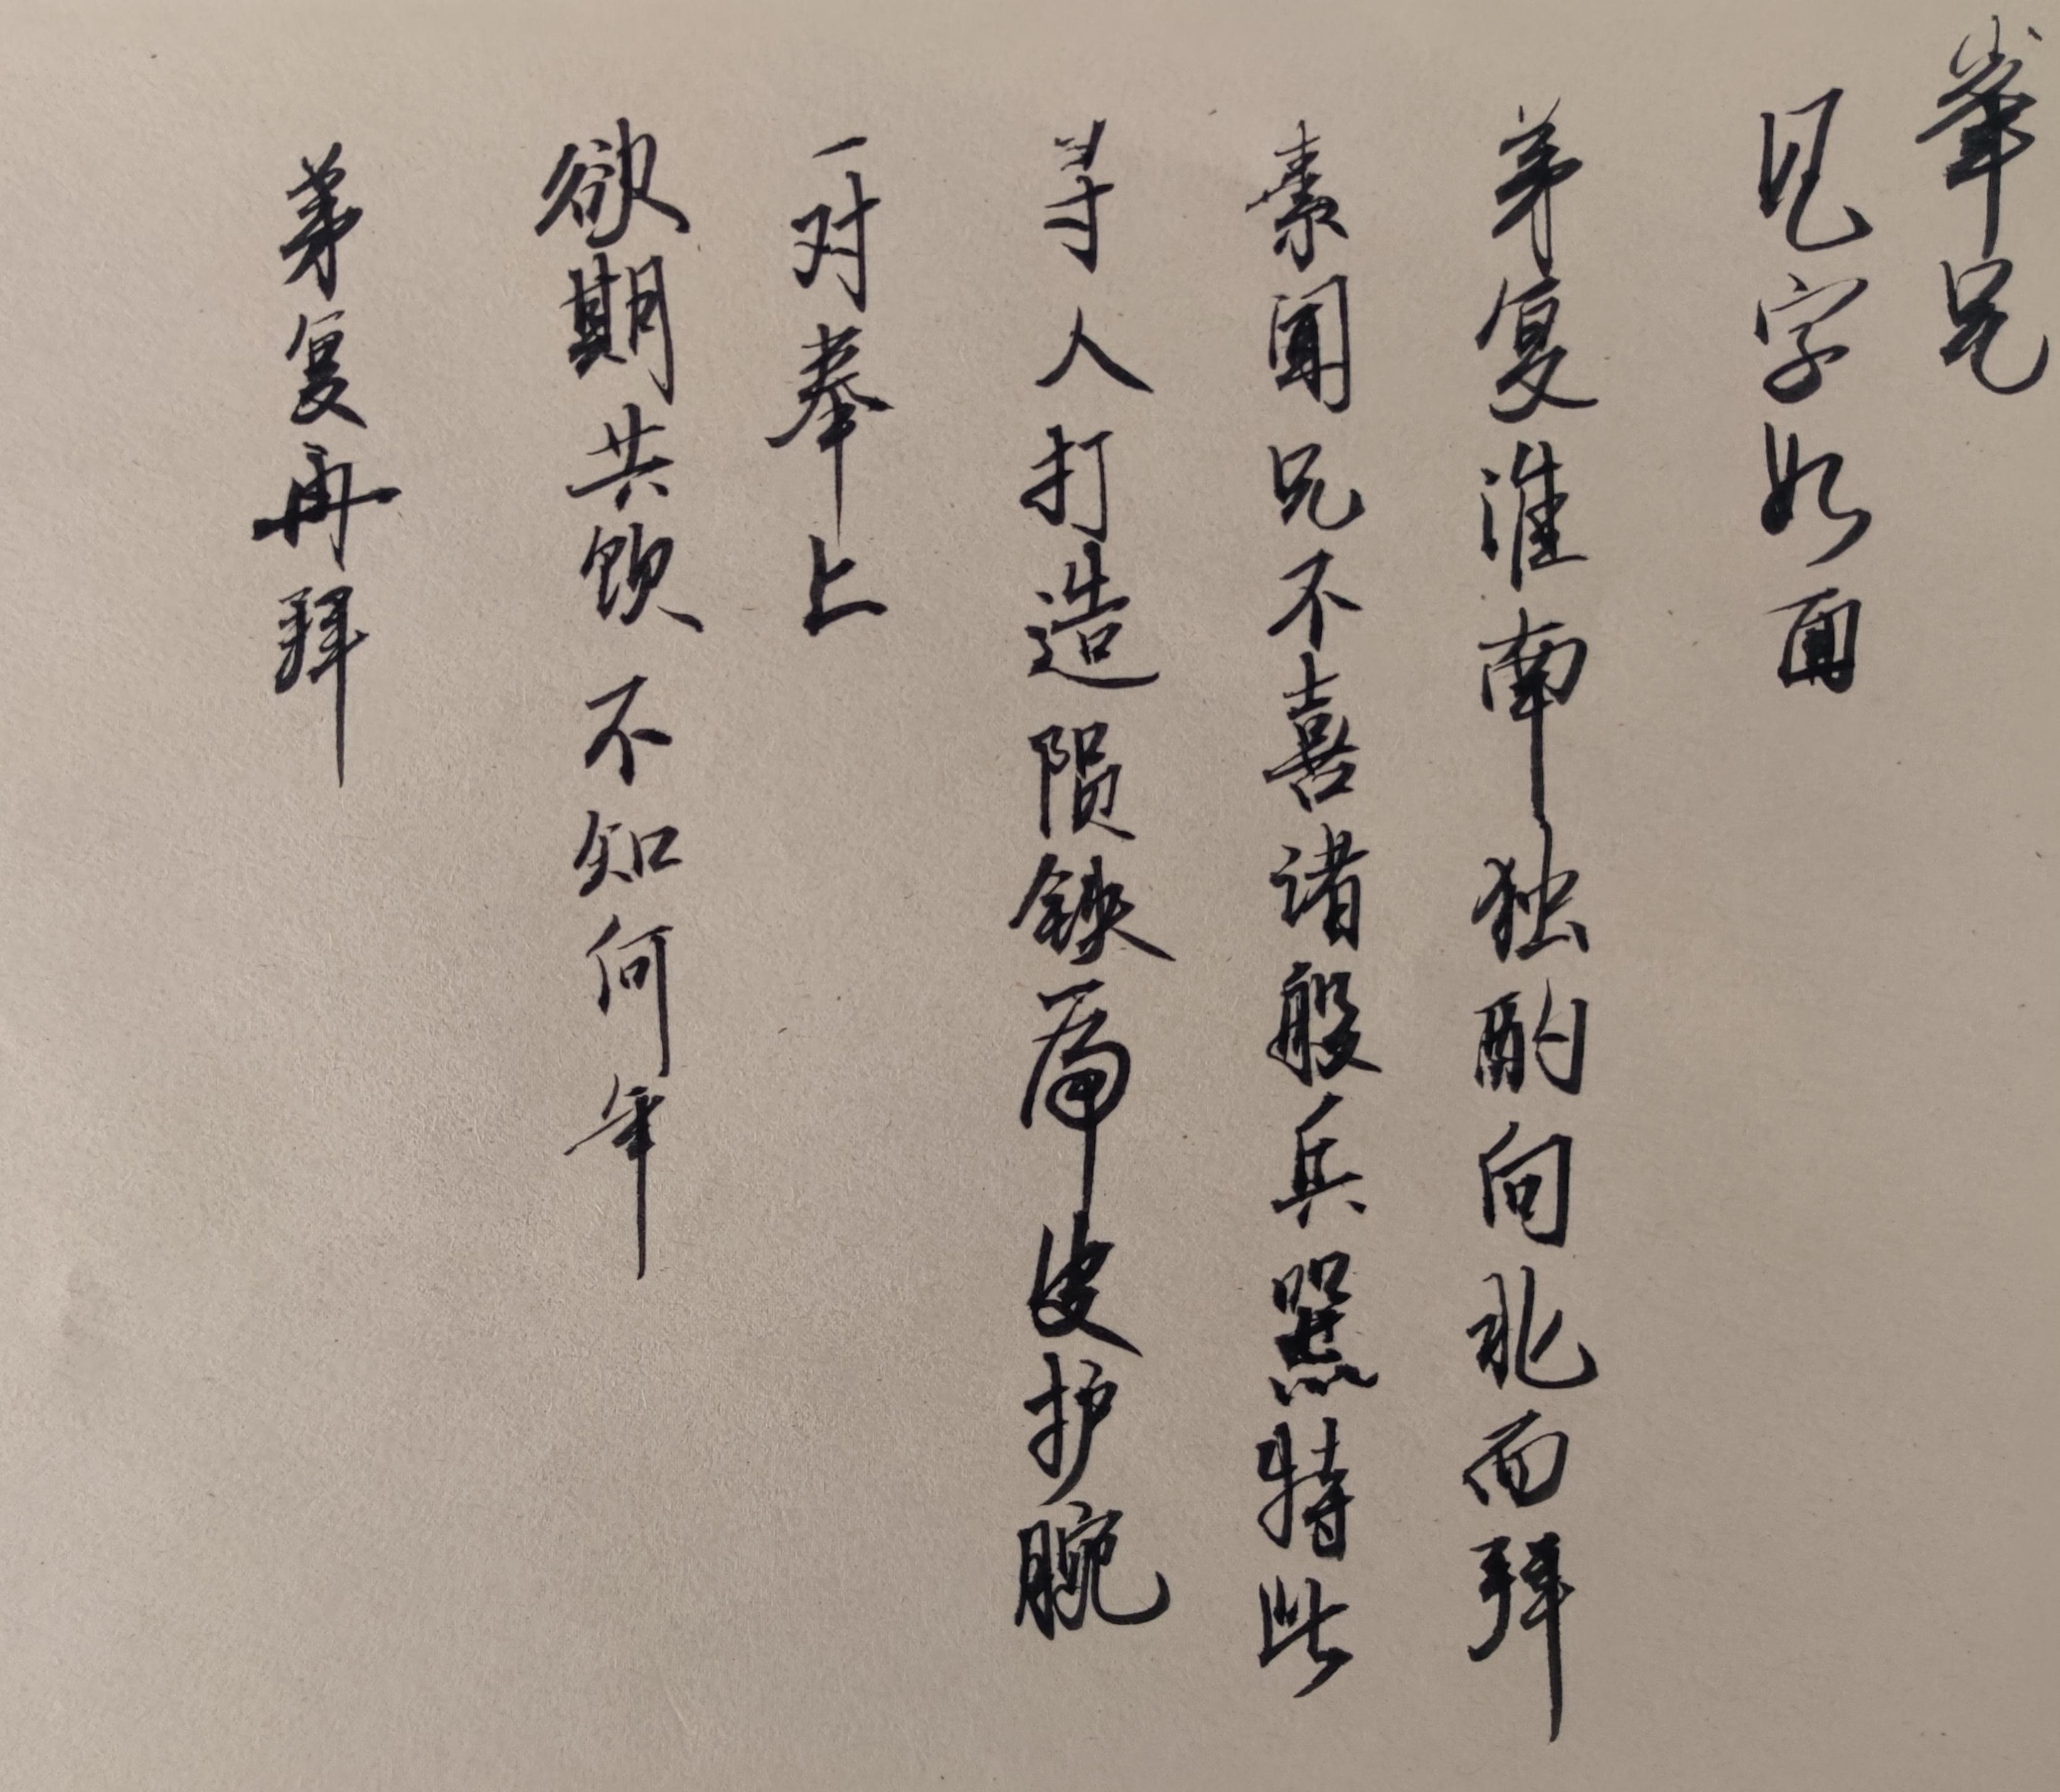 峯兄
见字如面
弟复淮南独酌向北而拜
素闻兄不喜诸般兵器特此
寻人打造陨铁皮护腕
一对奉上
欲期共饮不知何年
弟复再拜